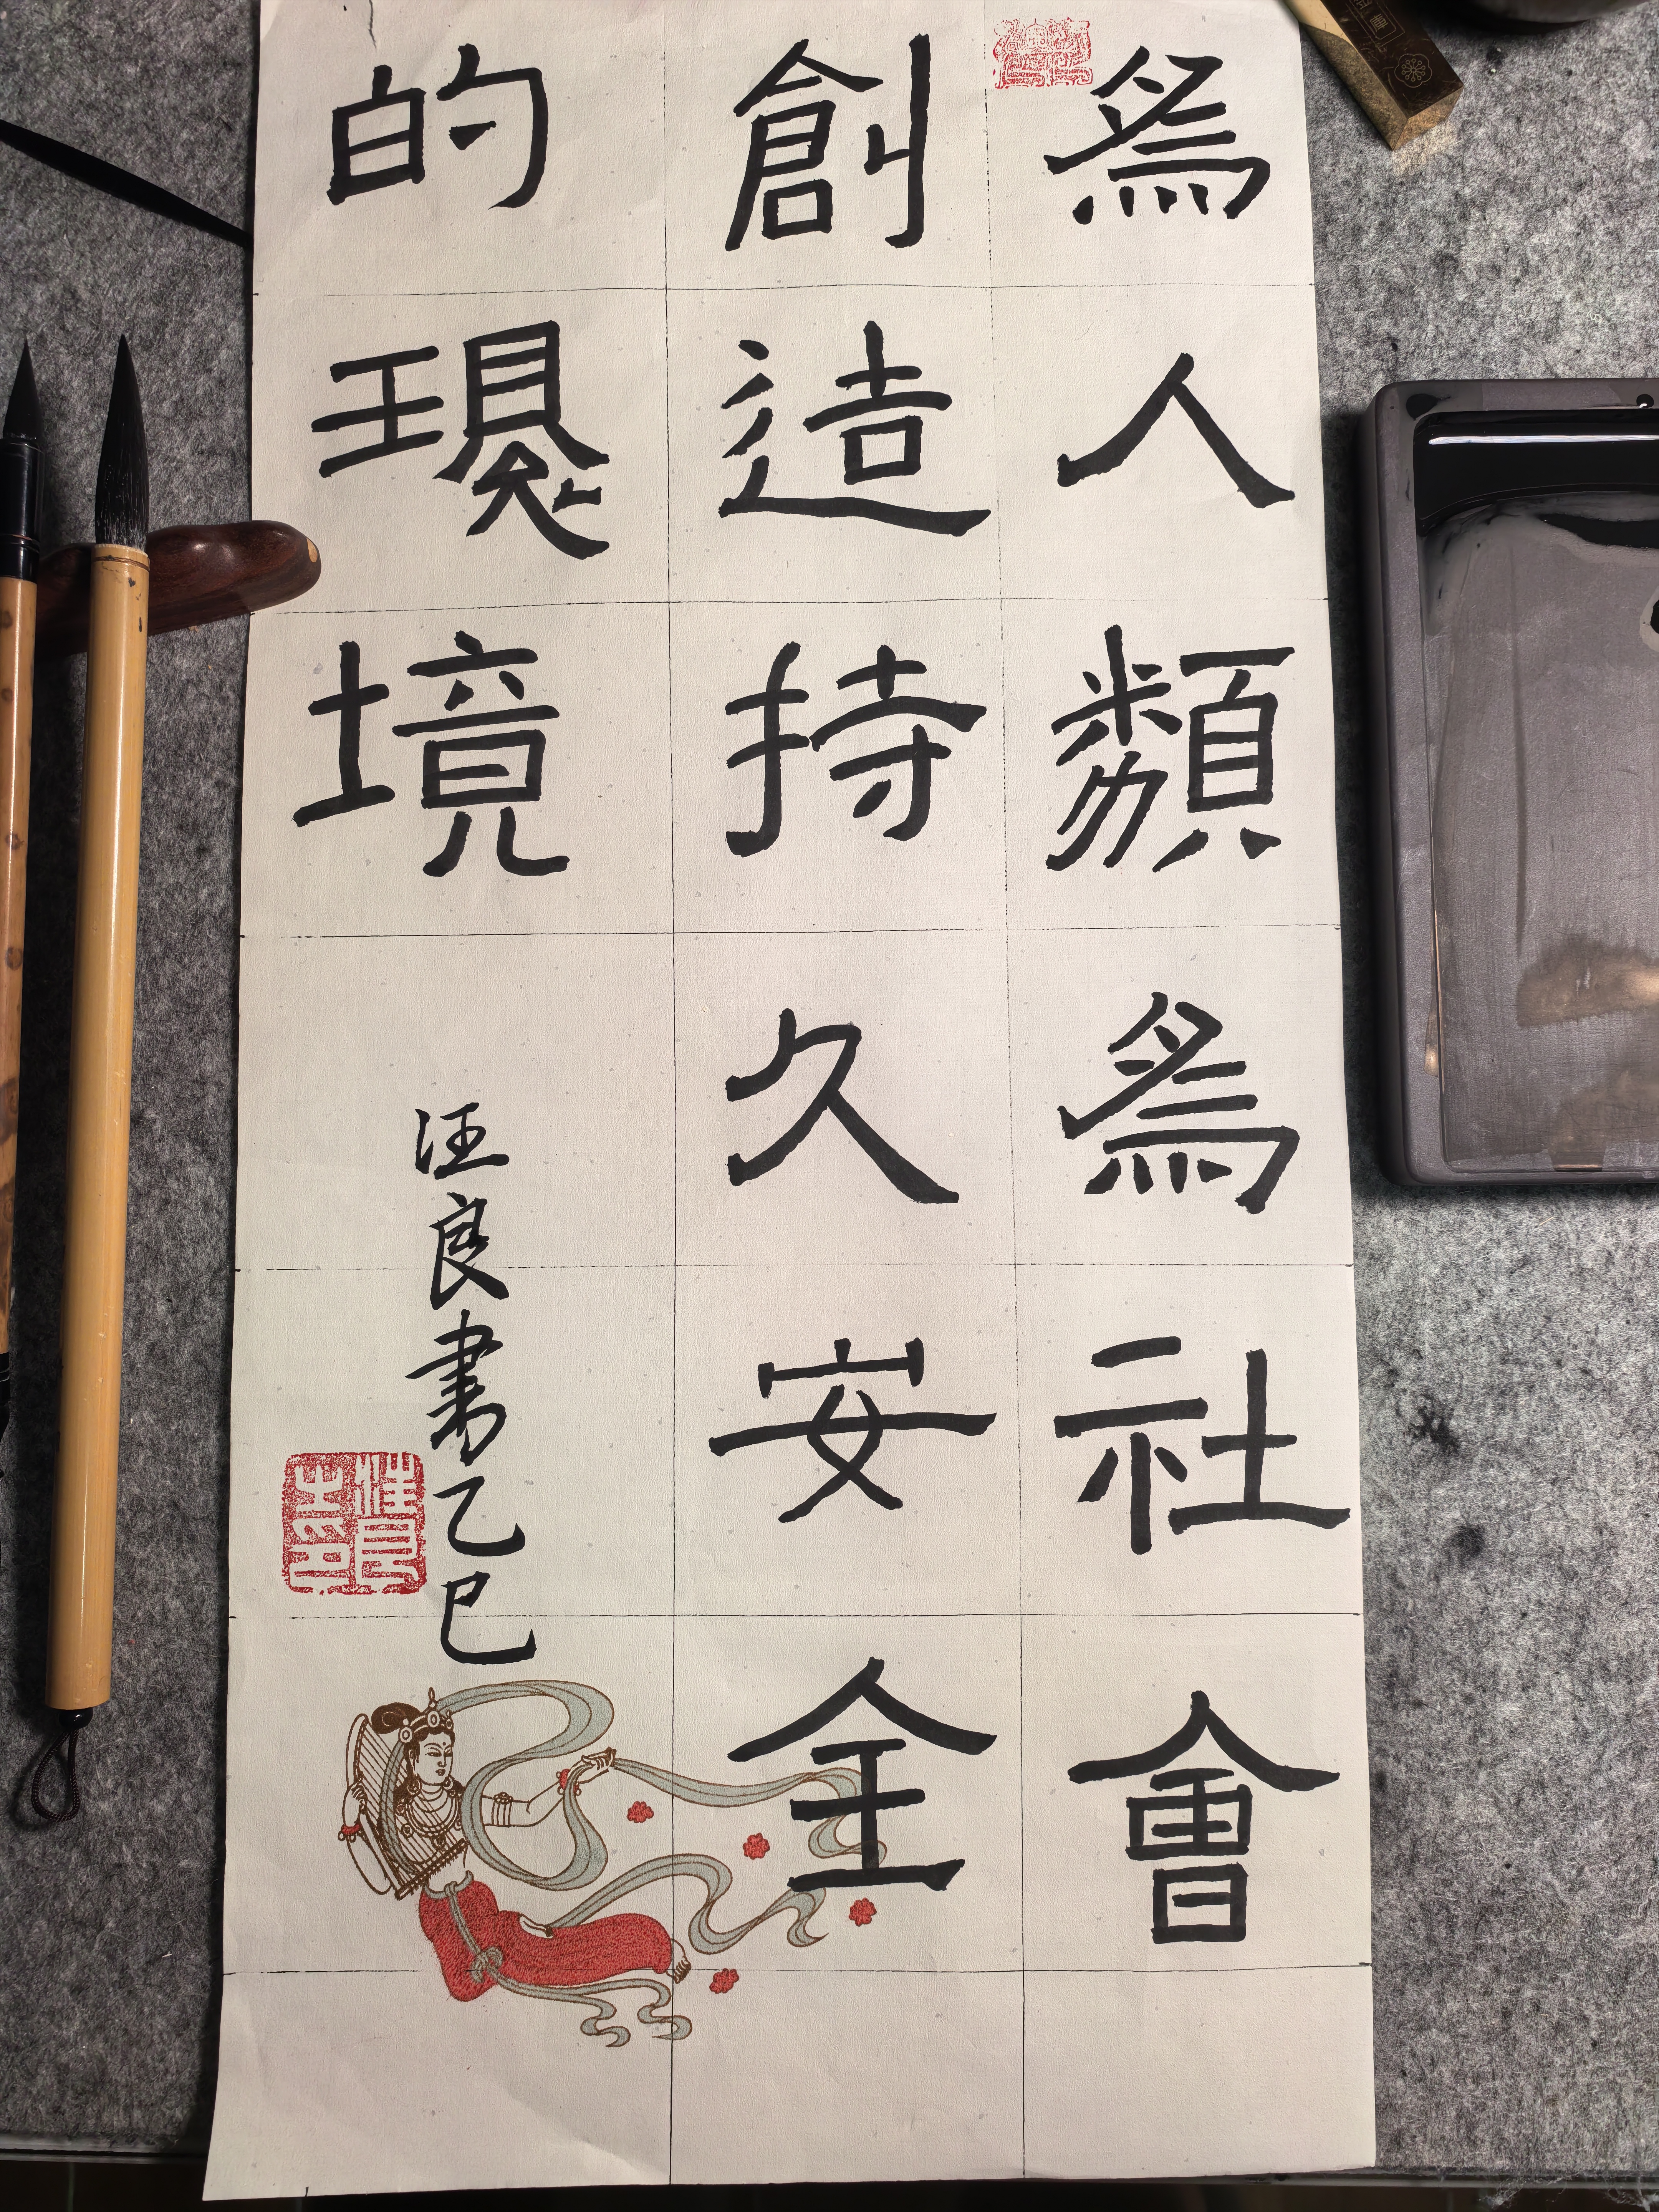 爲人類爲社會
創造持久安全
的環境
汪良書乙巳
汪良之印